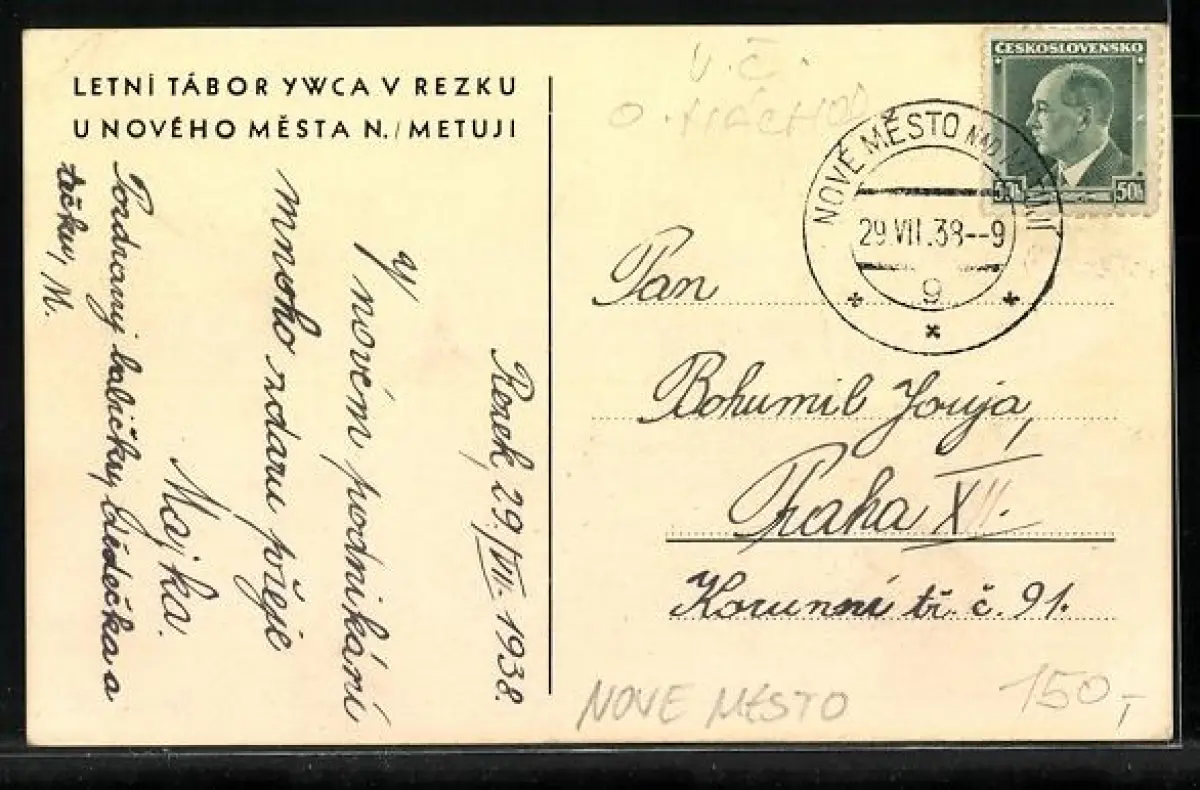 LETNÍ TÁBOR YWCA V REZKU
U NOVÉHO MĚSTA N./METUJI
Rezek, 29./VII. 1938.
V novém podnikání
mnoho zdaru přeje
Majka.
Pozdravuj babičku, dědečka a
M.
V. Č.
O. NÁCHOD
ČESKOSLOVENSKO
50h 50h
NOVÉ MĚSTO NAD METUJÍ
29 VII.38--9
9
Pan
Bohumil Jouja,
Praha XII.
Korunní tř. č. 91.
NOVE MĚSTO
150,-